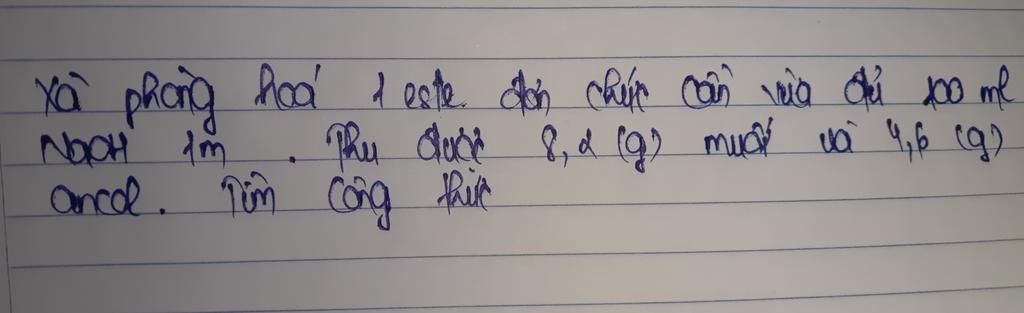 Xà phòng hoá 1 este đơn chức cần vừa đủ 100 ml
NaOH 1m . Thu được 8,2 (g) muối và 4,6 (g)
ancol. Tìm công thức